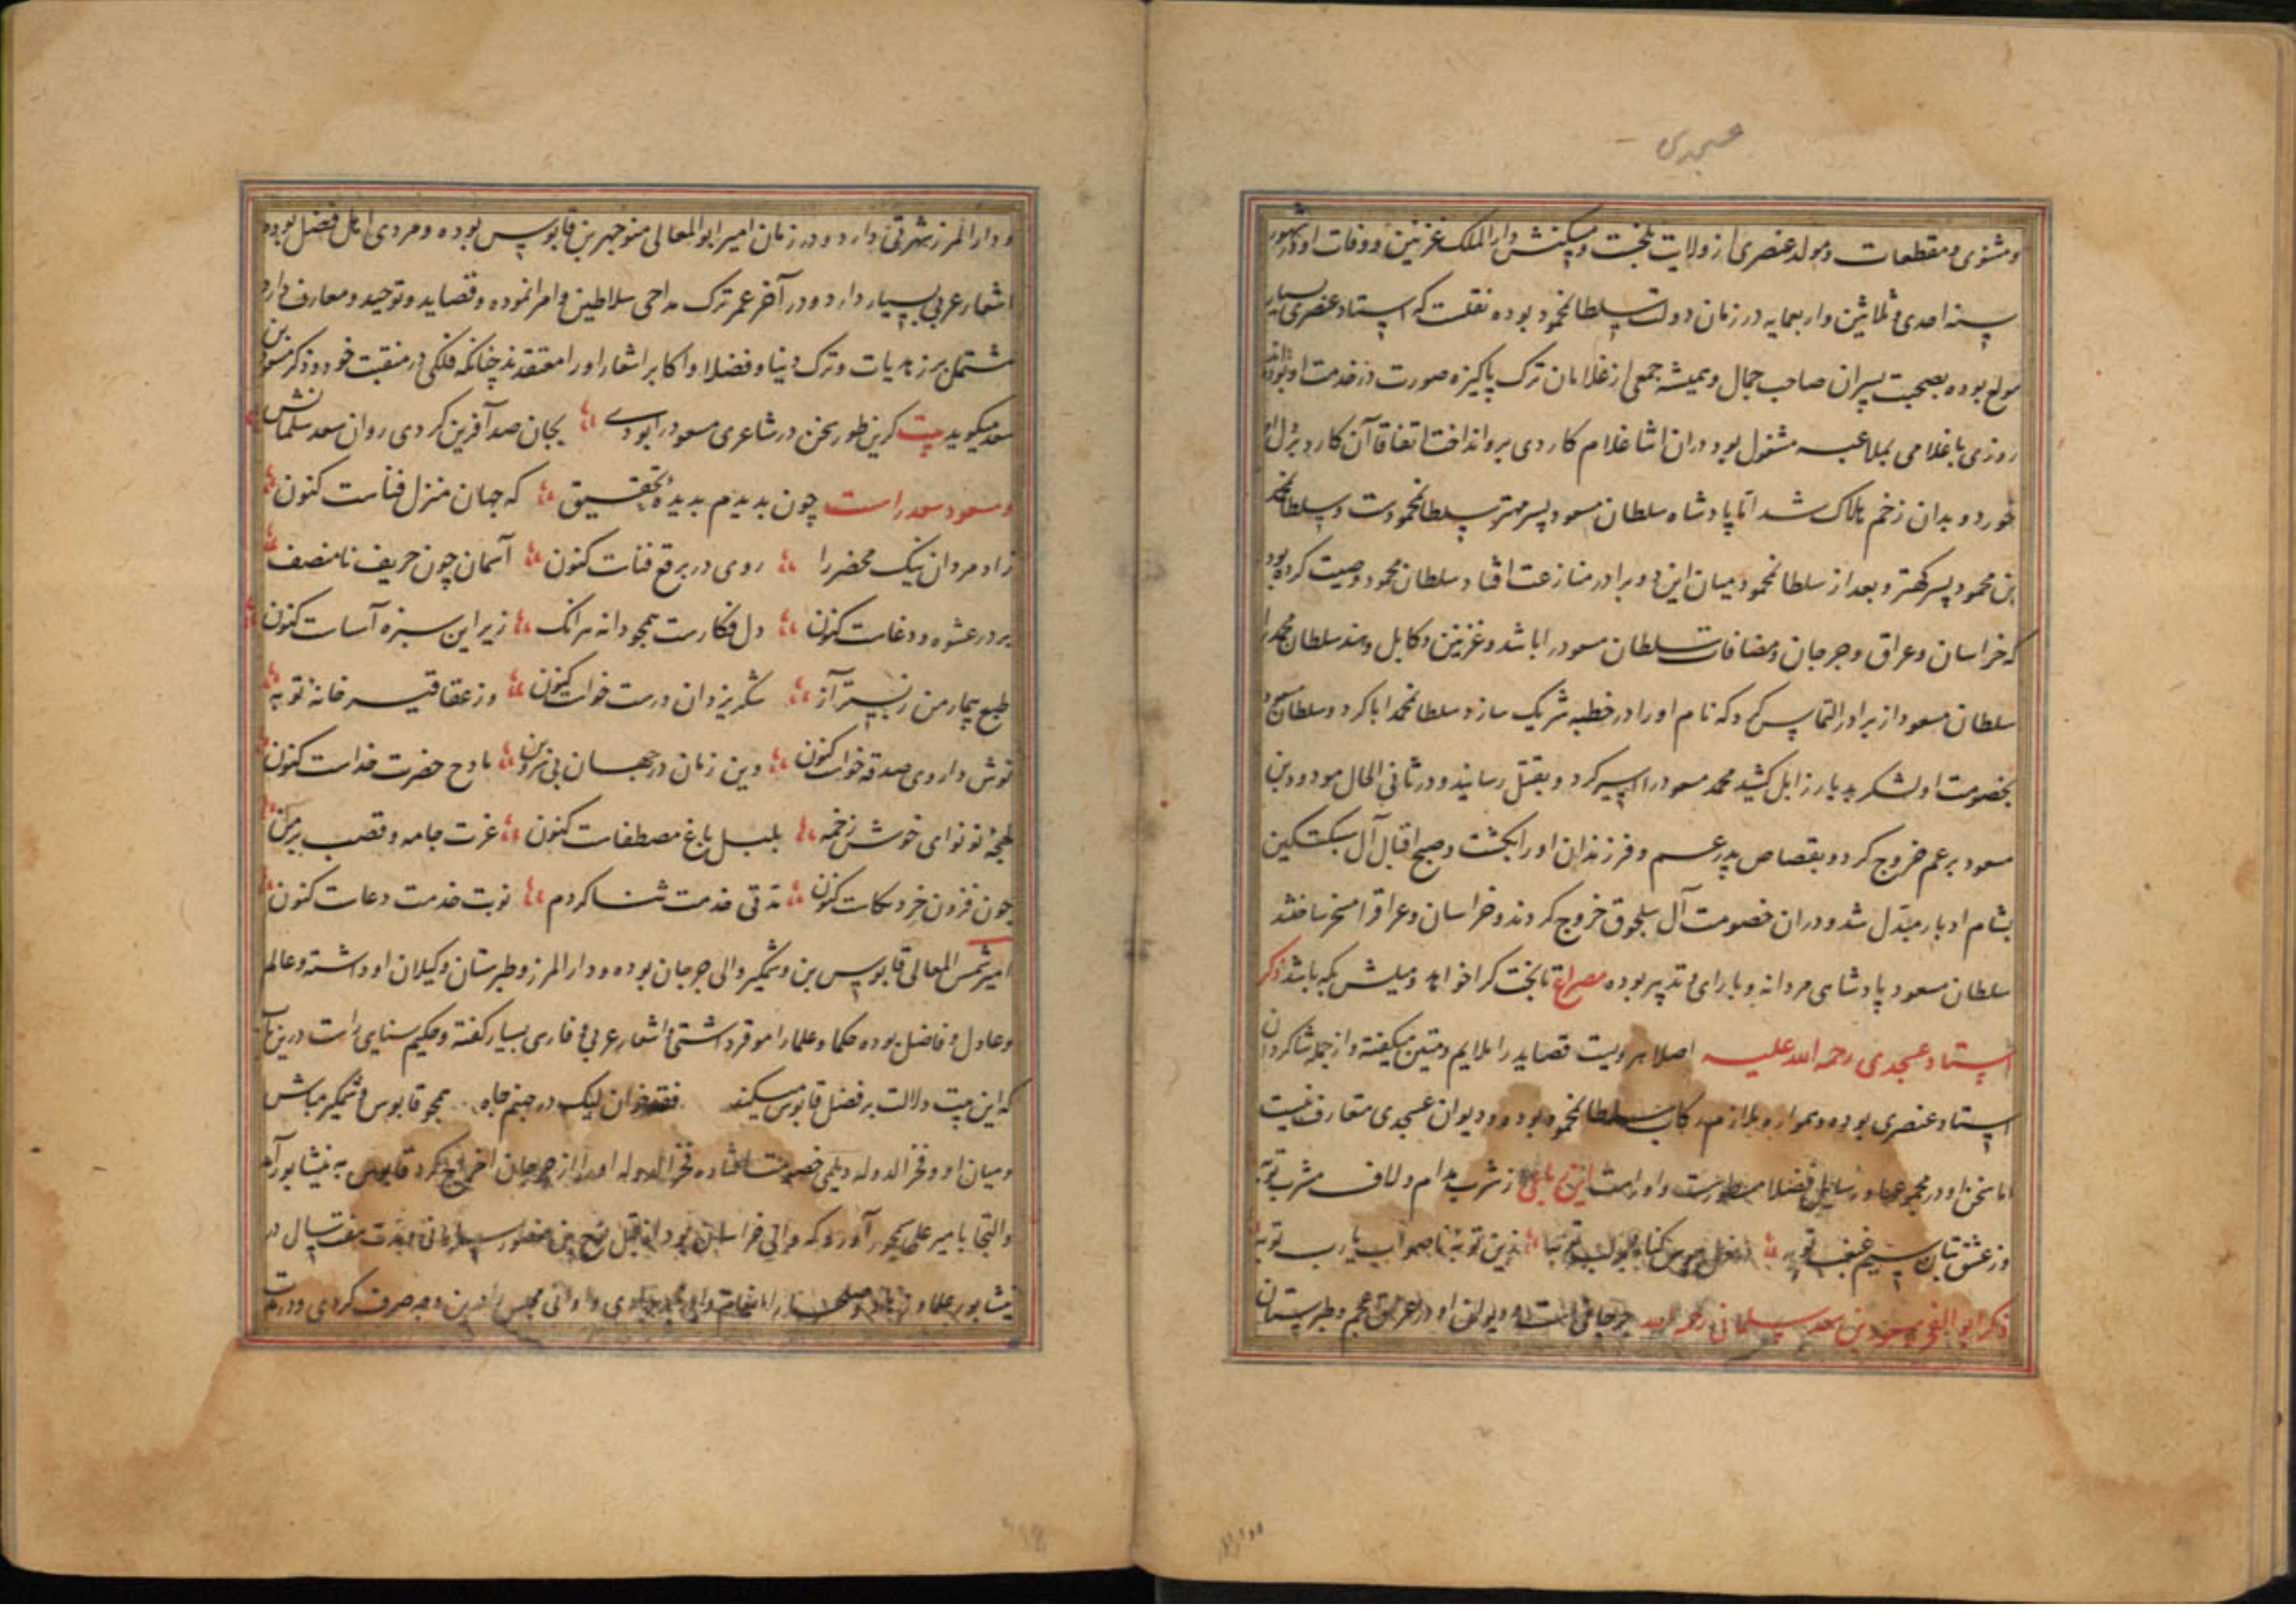 عسجدی
و مثنوی و مقطعات و مولد عنصری از ولایت بلخست و مسکنش دارالملک غزنین و وفات او در شهور
سنه احدی و ثلاثین و اربعمایه در زمان دولت سلطان محمود بوده نقلست که استاد عنصری بسیار
مولع بوده بصحبت پسران صاحب جمال و همیشه جمعی از غلامان ترک پاکیزه صورت در خدمت او بوده
روزی با غلامی بملاعبه مشغول بود دران اثنا غلام کاردی برو انداخت اتفاقا آن کارد
خورد و بدان زخم هلاک شد اما پادشاه سلطان مسعود پسر مهتر سلطان محمودست و سلطان محمد
بن محمود پسر کهتر و بعد از سلطان محمود میان این دو برادر منازعت افتاد سلطان محمود وصیت کرده بود
که خراسان و عراق و جرجان و مضافات سلطان مسعود را باشد و غزنین و کابل و هند سلطان محمد را
سلطان مسعود از برادر التماس کرد که نام او را در خطبه شریک سازد سلطان محمد ابا کرد و سلطان مسعود
بخصومت او لشکر بدیار زابل کشید محمد مسعود را اسیر کرد و بقتل رسانید و در ثانی الحال مودود بن
مسعود بر عم خروج کرد و بقصاص پدر عم و فرزندان او را بکشت و صبح اقبال آل سبکتکین
بشام ادبار مبدل شد و دران خصومت آل سلجوق خروج کردند و خراسان و عراق را مسخر ساختند
سلطان مسعود پادشاهی مردانه و با رای و تدبیر بوده مصراع تا بخت کرا خواهد و میلش بکه باشد ذکر
استاد عسجدی رحمه الله علیه اصلا هرویست قصاید را ملایم و متین میگفته و از جمله شاکردان
استاد عنصری بوده و همواره ملازم رکاب سلطان محمود بود و دیوان عسجدی متعارف نیست
اما سخن او در مجموعها و رسایل فضلا مسطورست و او راست این رباعی از شرب مدام و لاف مشرب توبه
وز عشق بتان سیم غبغب توبه دل در هوس کناه و بر لب توبه زین توبه ناصواب یارب توبه
ذکر ابو الفخر مسعود بن سعد سلمانی رحمه الله جرجانی است و دیوان او در عراق عجم و طبرستان
و دار المرز شهرتی دارد و در زمان امیر ابو المعالی منوچهر بن قابوس بوده و مردی اهل فضل بوده
اشعار عربی بسیار دارد و در آخر عمر ترک مداحی سلاطین و امرا نموده و قصاید و توحید و معارف دارد
مشتمل بر زهدیات و ترک دنیا و فضلا و اکابر اشعار او را معتقدند چنانکه فلکی در منقبت خود و ذکر مسعود بن
سعد میکوید بیت کر این طور سخن در شاعری مسعود را بودی بجان صد آفرین کردی روان سعد سلمانش
و مسعود سعد راست چون بدیدم بدیدهٔ تحقیق که جهان منزل فناست کنون
زاد مردان نیک محضر را روی در برقع فناست کنون آسمان چون حریف نامنصف
بر در عشوه و دغاست کنون دل فکارست همچو دانه زیر این سبزه آسیاست کنون
طبع بیمار من ز بستر آز شکر یزدان درست خاست کنون وز عقاقیر خانهٔ توبه
نوش داروی صدقه خواست کنون وین زبان در جهان مادح حضرت خداست کنون
لهجهٔ نو نوای خوش زخمه بلبل باغ مصطفاست کنون عزت جامه و قصب بر من
چون فزون خرد بکاست کنون مدتی خدمت شما کردم نوبت خدمت دعاست کنون
امیر شمس المعالی قابوس بن وشمگیر والی جرجان بوده و دار المرز و طبرستان و کیلان او داشته و عالم
و عادل و فاضل بوده حکما و علما را موقر داشتی و اشعار عربی و فارسی بسیار کفته و حکیم سنایی راست درین باب
که این بیت دلالت بر فضل قابوس میکند فقه خوان لیک در جهنم جاه همچو قابوس وشمگیر مباش
و میان او و فخر الدوله دیلمی خصومت افتاده فخر الدوله او را از جرجان اخراج کرد قابوس به نیشابور آمد
و التجا بامیر علی سیمجور آورد که والی خراسان بود از قبل نوح بن منصور سامانی و مدت هفت سال در
نیشابور علما و زهاد و صلحا را انعام دادی و اوانی مجلس را درین وجه صرف کردی و در مدت